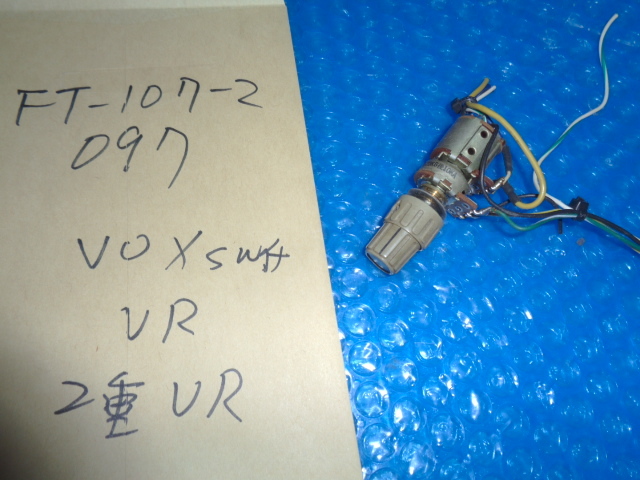 FT-107-2
097
VOX SWft
VR
2重 VR